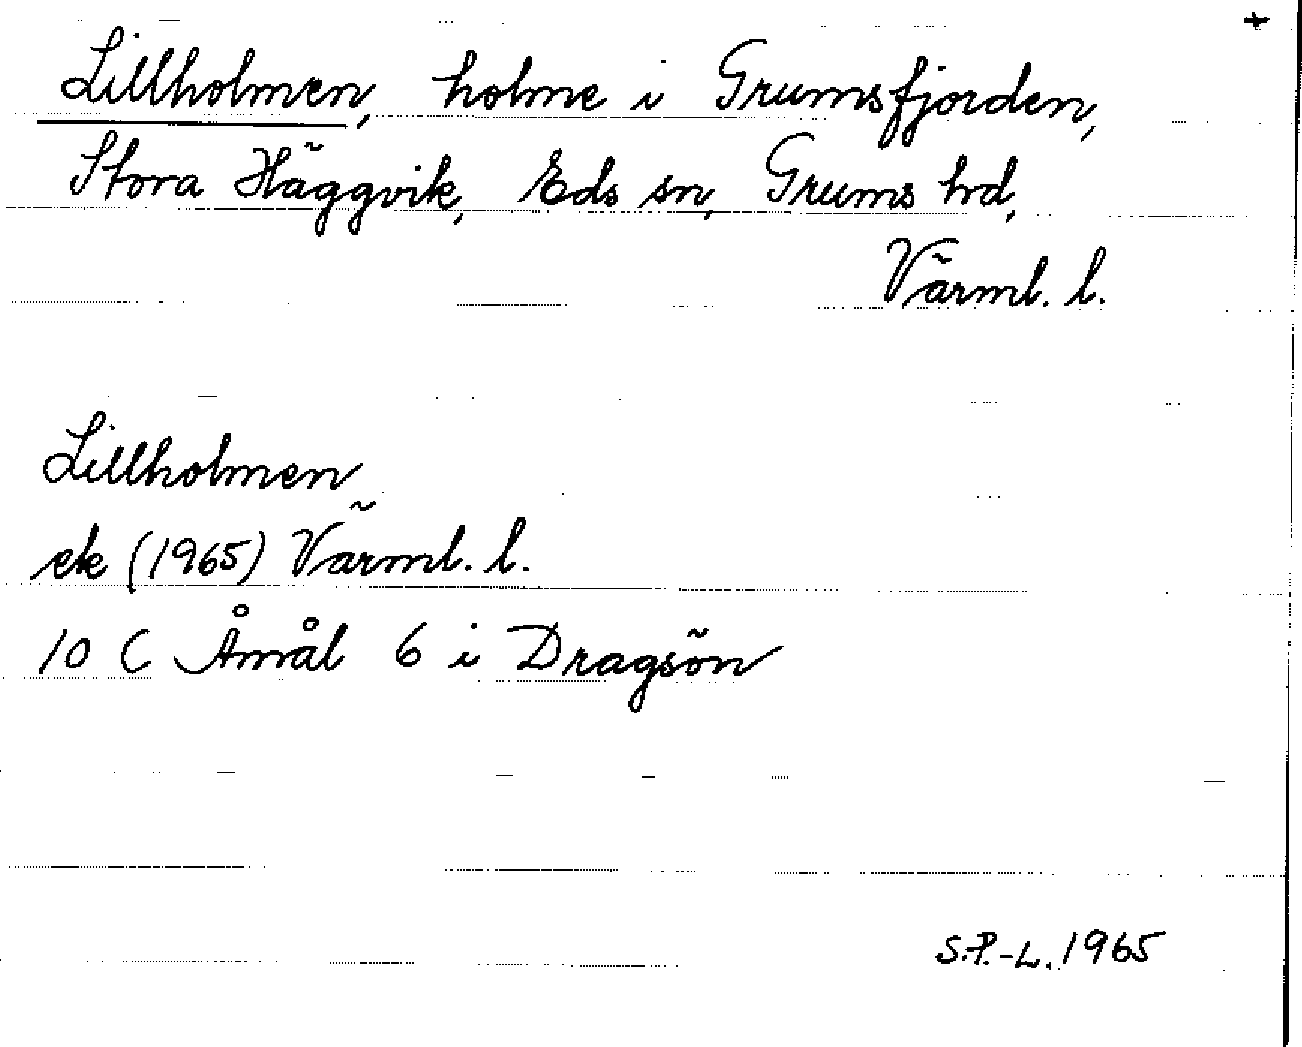 +
Lillholmen, holme i Grumsfjorden,
Stora Häggvik, Eds sn, Grums hd,
Värml. l.
Lillholmen
ek (1965) Värml. l.
10 C Åmål 6 i Dragsön
S.P.-L. 1965